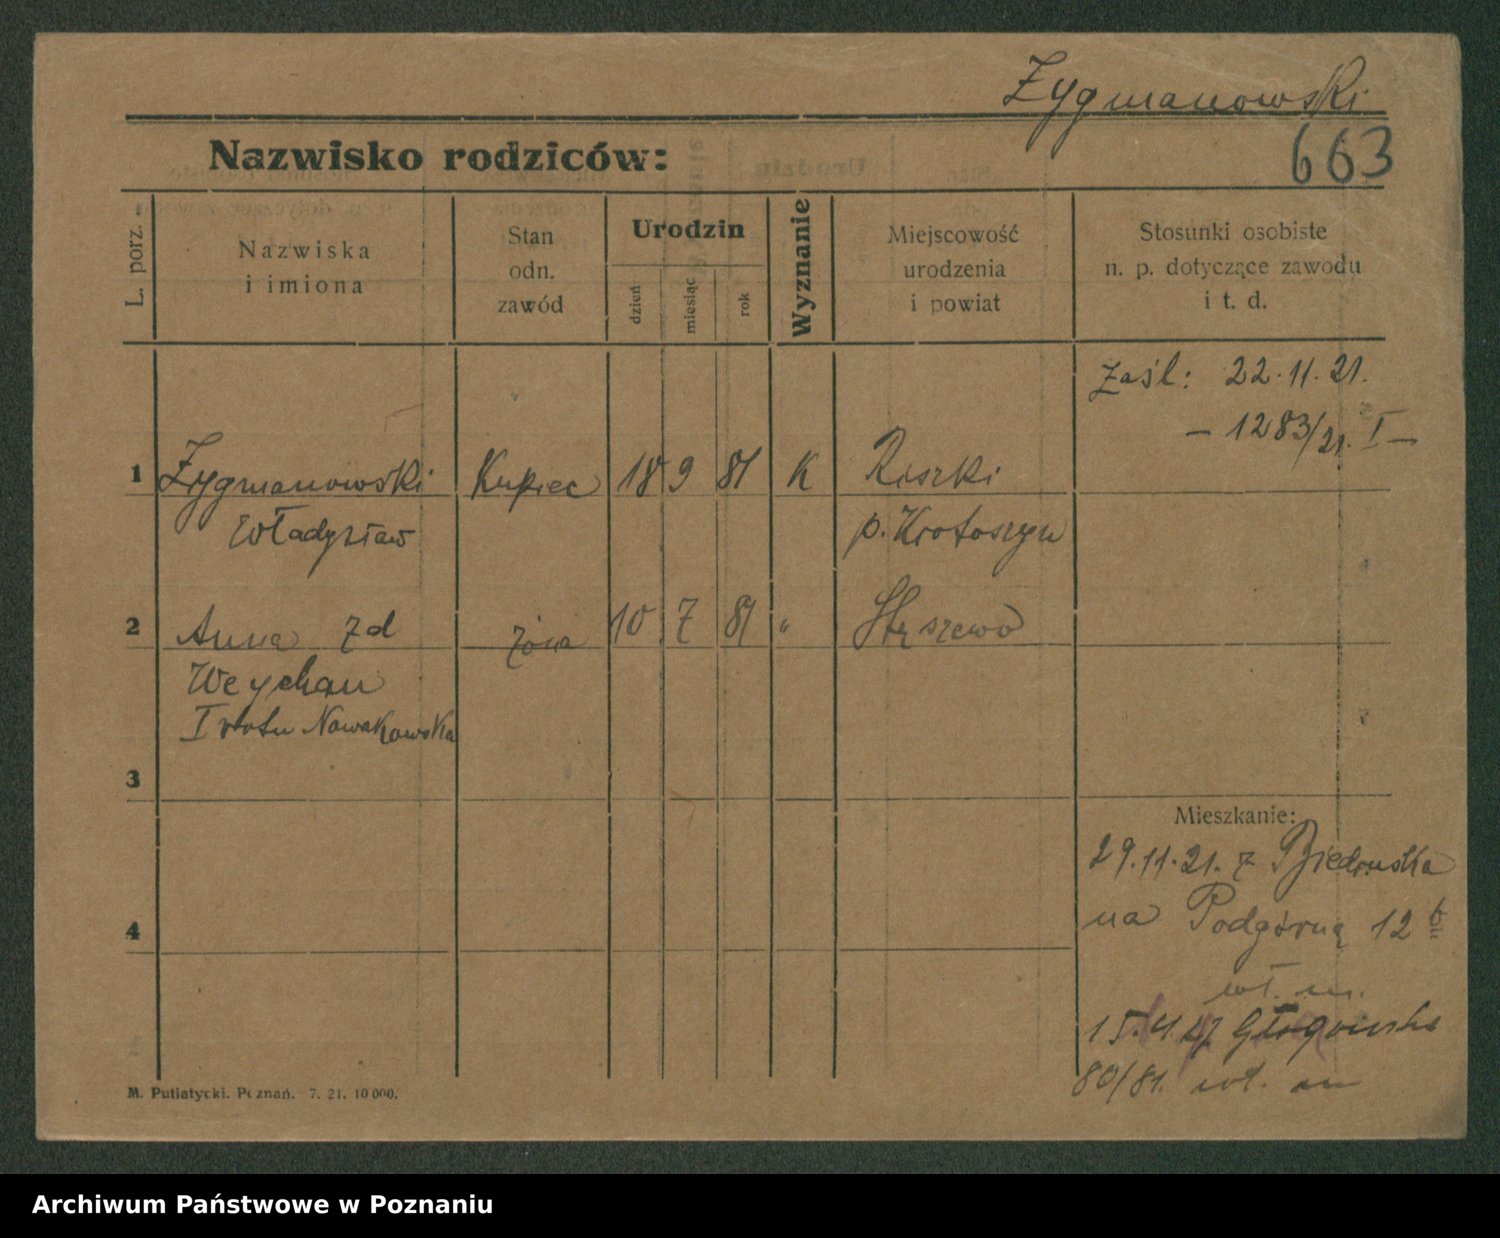 Zygmanowski
663
Nazwisko rodziców:
L. porz.
Nazwiska
i imiona
Stan
odn.
zawód
Urodzin
dzień
miesiąc
rok
Wyznanie
Miejscowość
urodzenia
i powiat
Stosunki osobiste
n. p. dotyczące zawodu
i t. d.
zaśl: 22.11.21.
— 1283/21. I —
1 Zygmanowski Kupiec 18 9 81 K Roszki
Władysław p. Krotoszyn
2 Anna zd żona 10 7 81 " Stęszewo
Weychan
I voto Nowakowska
3
Mieszkanie:
29.11.21. z Biedruska
na Podgórną 12 b
4
wł. m.
15.4.27 Głogowska
80/81. wł. m
M. Putiatycki. Poznań. 7. 21. 10 000.
Archiwum Państwowe w Poznaniu